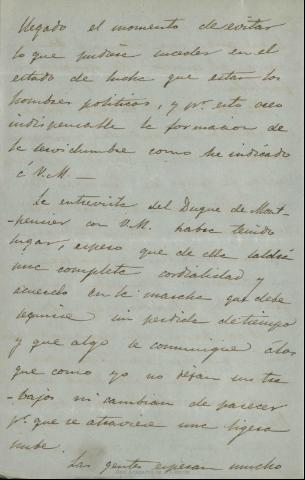 llegado el momento de evitar
lo que pudiese suceder en el
estado de lucha que estan los
hombres politicos, y pr. esto creo
indispensable la formacion de
la servidumbre como he indicado
á V.M —
La entrevista del Duque de Mont-
-pensier con V.M. habra tenido
lugar, espero que de ella saldrá
una completa cordialidad y
acuerdo en la marcha que debe
seguirse sin perdida de tiempo
y que algo se comunique á los
que como yo no dejan sus tra-
-bajos ni cambian de parecer
pr. que se atraviese una ligera
nube.
Las gentes esperan mucho